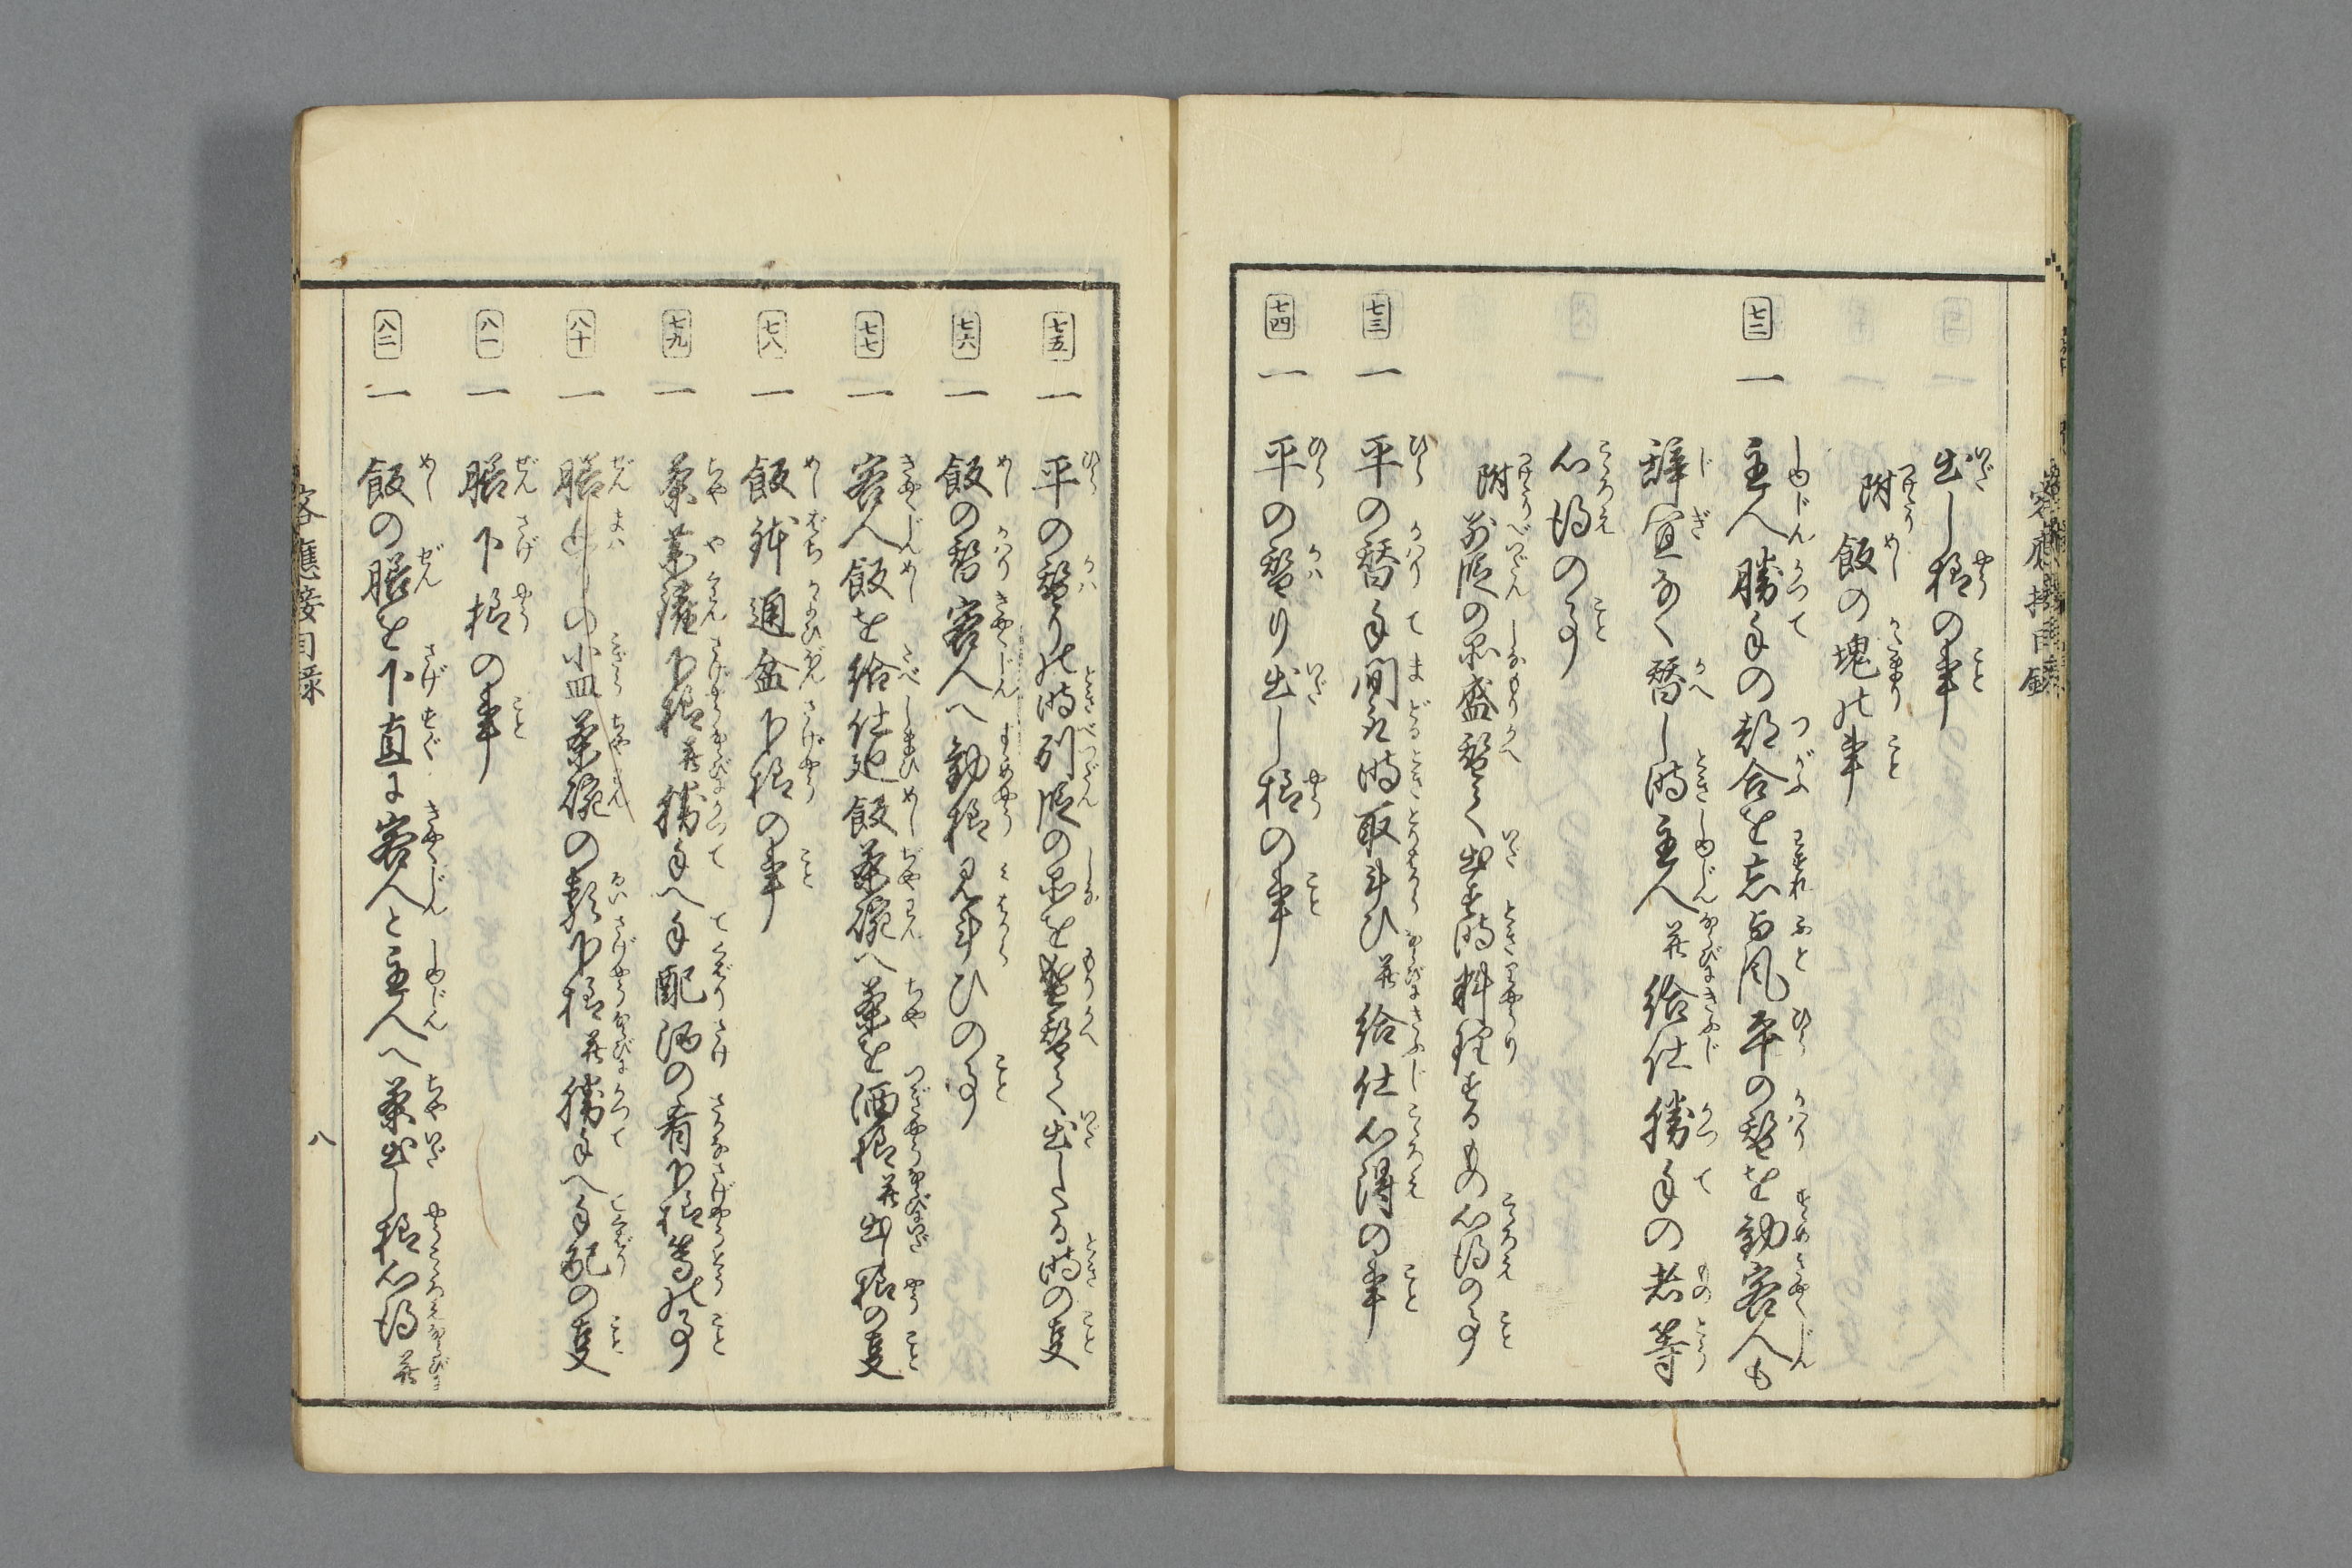 出し様の事
附 飯の塊の事
七二 一 主人勝手の都合を忘与風平の盛を勧客人も
辞宜なく替し時主人并給仕勝手の者等
心得の事
附 別段の品盛替て出す時料理するもの心得の事
七三 一 平の替手間取時取斗ひ并給仕心得の事
七四 一 平の替り出し様の事
七五 一 平の替りの時別段の品を盛替て出したる時の事
七六 一 飯の替客人へ勧様見斗ひの事
七七 一 客人飯を給仕廻飯茶碗へ茶を洒様并出様の事
七八 一 飯鉢通盆下様の事
七九 一 茶薬鑵下様并勝手へ手配酒の肴下様等の事
八十 一 膳廻しの小皿茶碗の類下様并勝手へ手配の事
八一 一 膳下様の事
八二 一 飯の膳を下直に客人と主人へ茶出し様心得并
客應接目録
八